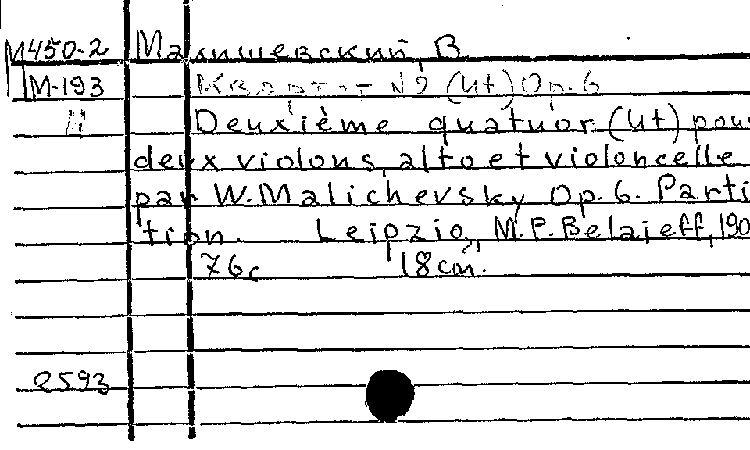 М450-2 Малишевский, В.
М-193 Квартет №2 (Ut) Op. 6
Н Deuxième quatuor (Ut) pour
deux violons, alto et violoncelle
par W. Malichevsky Op. 6. Parti
tion. Leipzig, M. P. Belaieff, 190
76c 18cm.
2593